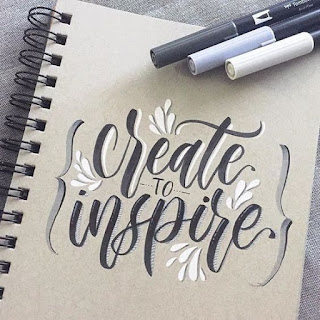 create
to
inspire.